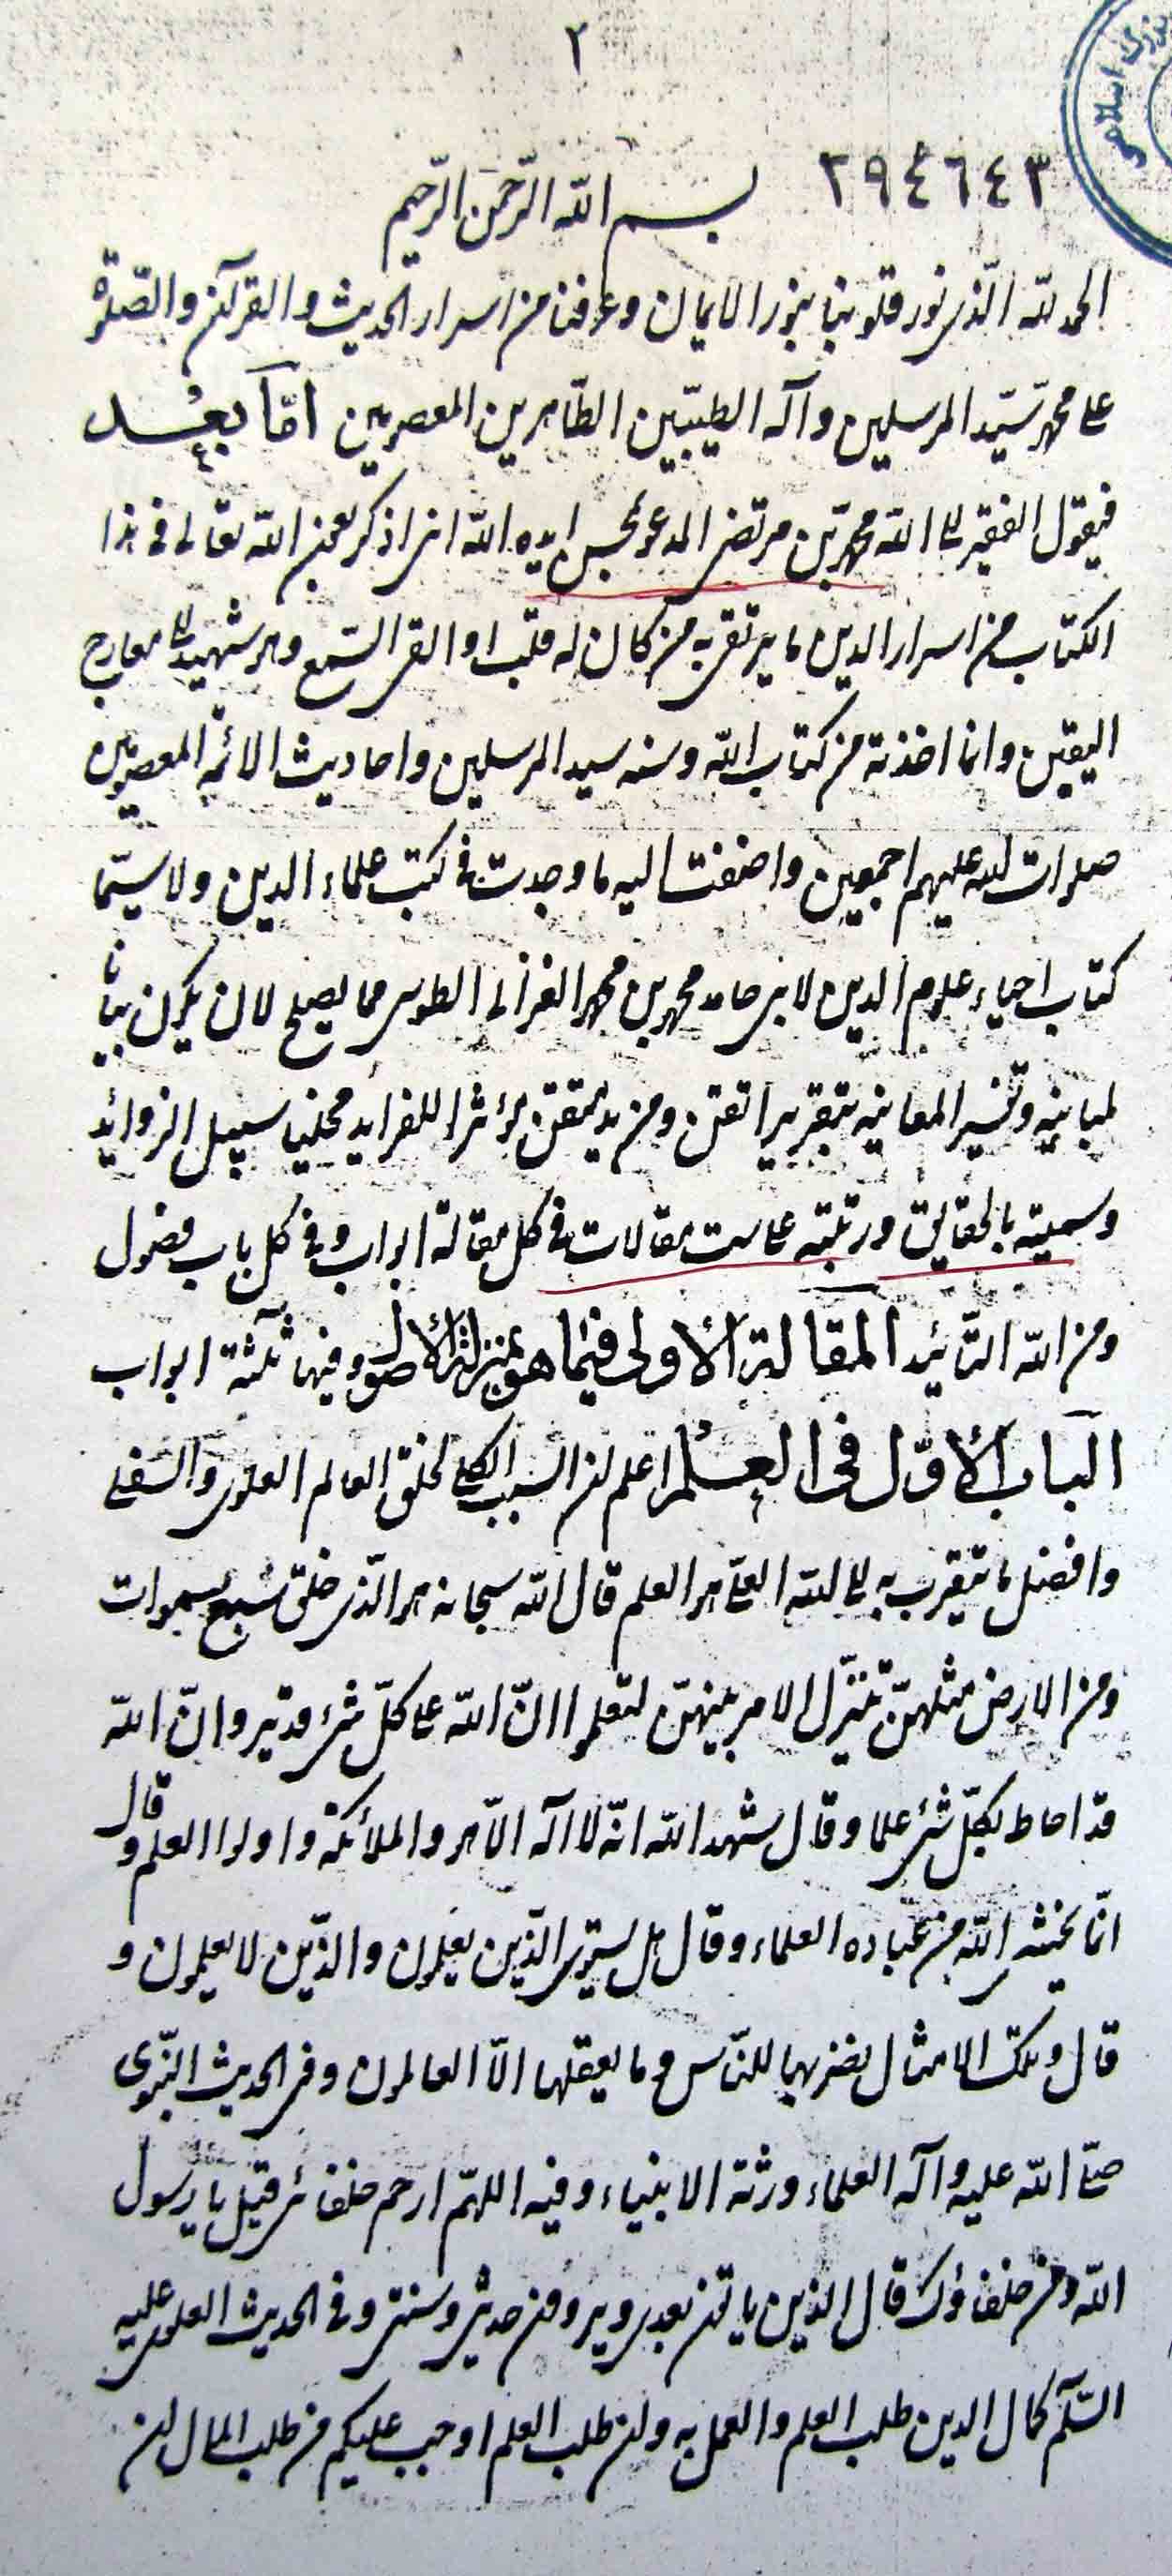 ٢
اسلامی
٢٩٤٦٤٣
بسم الله الرّحمن الرّحیم
الحمد لله الّذی نور قلوبنا بنور الایمان وعرفنا من اسرار الحدیث و القرآن والصّلوة
علی محمّد سیّد المرسلین وآله الطیّبین الطّاهرین المعصومین امّا بعد
فیقول الفقیر الی الله محمّد بن مرتضی المدعو بمحسن ایده الله انی اذکر بعون الله تعالی فی هذا
الکتاب من اسرار الدین ما یرتقی به من کان له قلب او القی السّمع وهو شهید الی معارج
الیقین وانما اخذته من کتاب الله وسنه سید المرسلین واحادیث الائمّه المعصومین
صلوات الله علیهم اجمعین واضفت الیه ما وجدت فی کتب علماء الدین ولا سیّما
کتاب احیاء علوم الدین لابی حامد محمد بن محمد الغزالی الطوسی مما یصلح لان یکون بیانا
لمبانیه وتفسیرا لمعانیه بتقریر اتقن ومزید یتقن مؤثرا للفراید مخلیا سبیل الزوائد
وسمیته بالحقایق ورتبته علی ست مقالات فی کل مقالة ابواب وفی کل باب فصول
ومن الله التأیید المقالة الأولی فیما هو بمنزلة الأصول وفیها ثلثة ابواب
الباب الأوّل فی العلم اعلم ان السبب الکلی لخلق العالم العلوی والسفلی
وافضل ما یتقرب به الی الله العلی هو العلم قال الله سبحانه هو الّذی خلق سبع سموات
ومن الارض مثلهنّ یتنزّل الامر بینهنّ لتعلموا انّ الله علی کلّ شیء قدیر وانّ الله
قد احاط بکلّ شیء علما وقال شهد الله انّه لا اله الّا هو والملائکة واولوا العلم وقال
انّما یخشی الله من عباده العلماء وقال هل یستوی الّذین یعلمون والّذین لا یعلمون و
قال وتلک الامثال نضربها للنّاس وما یعقلها الّا العالمون وفی الحدیث النّبوی
صلّی الله علیه وآله العلماء ورثة الانبیاء وفیه اللهمّ ارحم خلفائی قیل یا رسول
الله ومن خلفاؤک قال الذین یاتون بعدی ویروون حدیثی وسنتی وفی الحدیث العلوی علیه
السّلم کمال الدین طلب العلم والعمل به وان طلب العلم اوجب علیکم من طلب المال ان